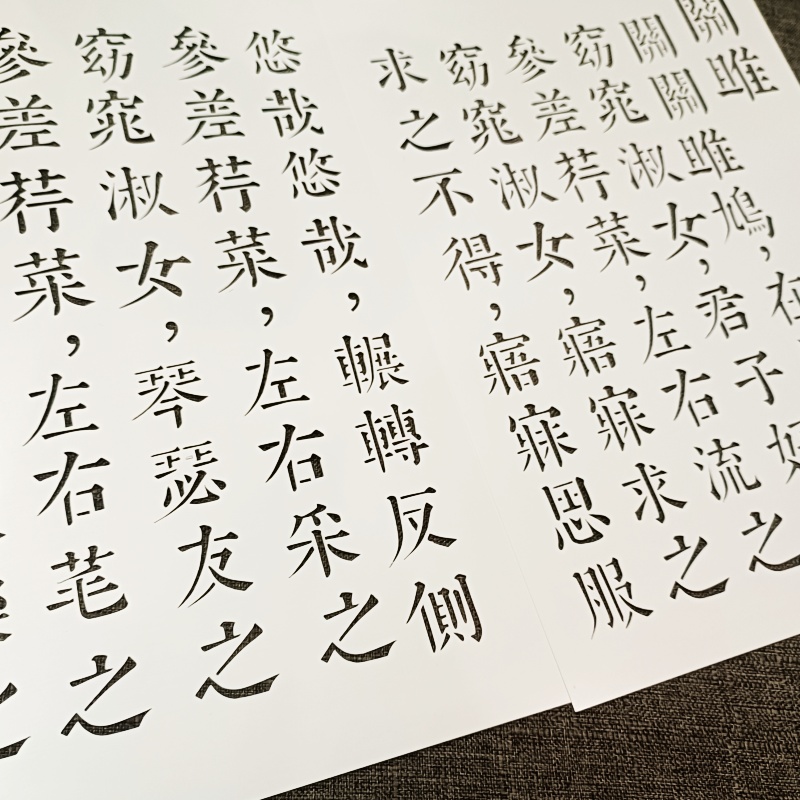 關雎
關關雎鳩，在
窈窕淑女，君子好
參差荇菜，左右流之
窈窕淑女，寤寐求之
求之不得，寤寐思服
悠哉悠哉，輾轉反側
參差荇菜，左右采之
窈窕淑女，琴瑟友之
參差荇菜，左右芼之
之